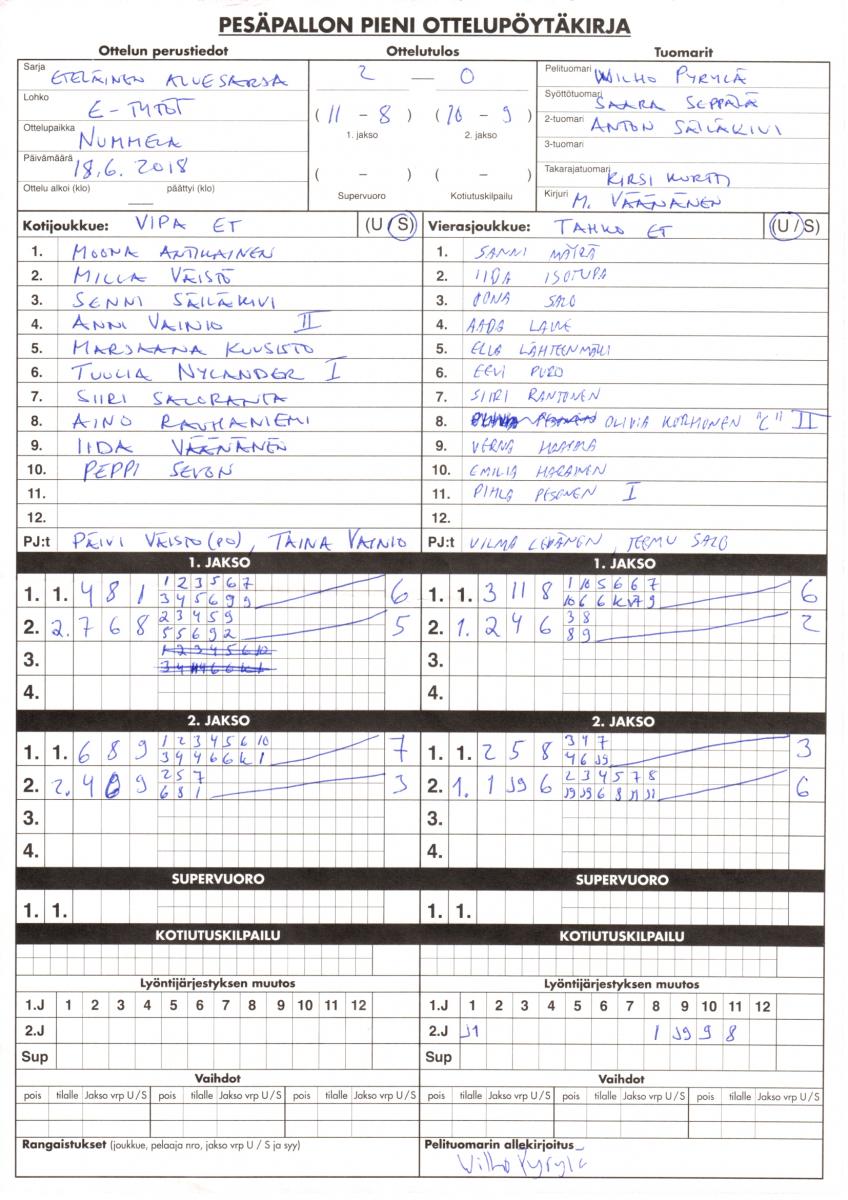 PESÄPALLON PIENI OTTELUPÖYTÄKIRJA
Ottelun perustiedot Ottelutulos Tuomarit
Sarja ETELÄINEN ALUESARJA
Lohko E-TYTÖT
Ottelupaikka NUMMELA
Päivämäärä 18.6.2018
Ottelu alkoi (klo) päättyi (klo)
2 — 0
( 11 - 8 ) ( 10 - 9 )
1. jakso 2. jakso
( - ) ( - )
Supervuoro Kotiutuskilpailu
Pelituomari WILHO PYRYLÄ
Syöttötuomari SAARA SEPPÄLÄ
2-tuomari ANTON SÄILÄKIVI
3-tuomari
Takarajatuomari KIRSI KURTTI
Kirjuri M. VÄÄNÄNEN
Kotijoukkue: VIPA ET (U / S)
1. MOONA ANTIKAINEN
2. MILLA VÄISTÖ
3. SENNI SÄILÄKIVI
4. ANNI VAINIO II
5. MARJAANA KUUSISTO
6. TUULIA NYLANDER I
7. SIIRI SALORANTA
8. AINO RAUHANIEMI
9. IIDA VÄÄNÄNEN
10. PEPPI SEVON
11.
12.
PJ:t PÄIVI VÄISTÖ (PO), TAINA VAINIO
Vierasjoukkue: TAHKO ET (U / S)
1. SANNI
2. IIDA ISOTUPA
3. OONA SALO
4. AADA LAINE
5. ELLA LÄHTEENMÄKI
6. EEVI PURO
7. SIIRI RANTONEN
8. OLIVIA KORHONEN "C" II
9. VERNA
10. EMILIA
11. PIHLA PESONEN I
12.
PJ:t VILMA, TEEMU SALO
1. JAKSO 1. JAKSO
1. 1. 4 8 1 1 2 3 5 6 7 6
3 4 5 6 9 9
2. 2. 7 6 8 2 3 4 5 9 5
5 5 6 9 2
3.
4.
1. 1. 3 11 8 1 10 5 6 6 7 6
10 6 6 K 7 9
2. 1. 2 4 6 3 8 2
8 9
3.
4.
2. JAKSO 2. JAKSO
1. 1. 6 8 9 1 2 3 4 5 6 10 7
3 4 4 6 6 K 1
2. 2. 4 6 9 2 5 7 3
6 8 1
3.
4.
1. 1. 2 5 8 3 4 7 3
4 6 J9
2. 1. 1 J9 6 2 3 4 5 7 8 6
J9 J9 6 8 J1 J1
3.
4.
SUPERVUORO SUPERVUORO
1. 1. 1. 1.
KOTIUTUSKILPAILU KOTIUTUSKILPAILU
Lyöntijärjestyksen muutos Lyöntijärjestyksen muutos
1.J 1 2 3 4 5 6 7 8 9 10 11 12 1.J 1 2 3 4 5 6 7 8 9 10 11 12
2.J 2.J J1 1 J9 9 8
Sup Sup
Vaihdot Vaihdot
pois tilalle Jakso vrp U / S pois tilalle Jakso vrp U / S pois tilalle Jakso vrp U / S pois tilalle Jakso vrp U / S
Rangaistukset (joukkue, pelaaja nro, jakso vrp U / S ja syy)
Pelituomarin allekirjoitus
Wilho Pyrylä